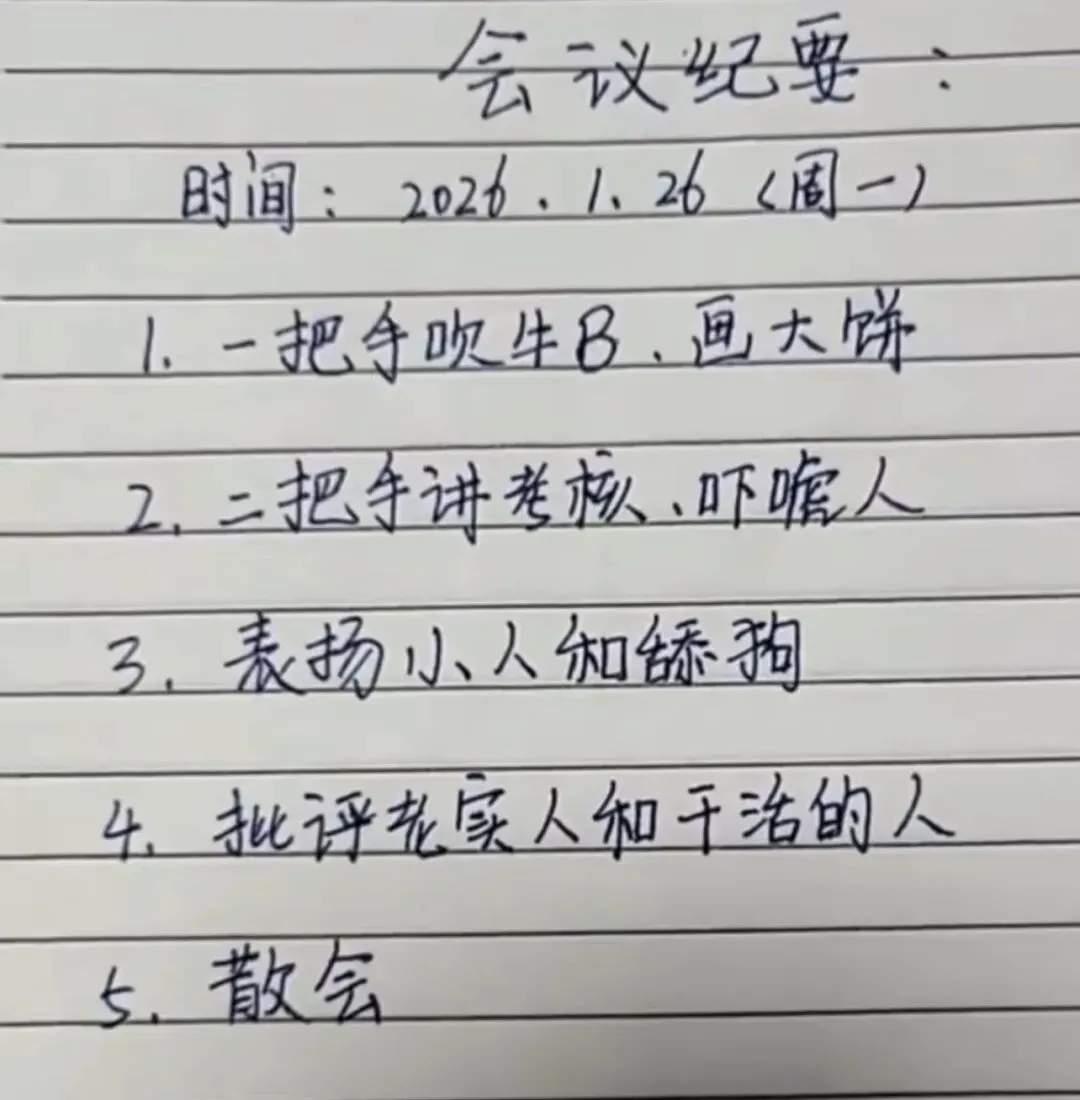 会议纪要：
时间：2026.1.26（周一）
1.一把手吹牛B、画大饼
2.二把手讲考核、吓唬人
3.表扬小人和舔狗
4.批评老实人和干活的人
5.散会